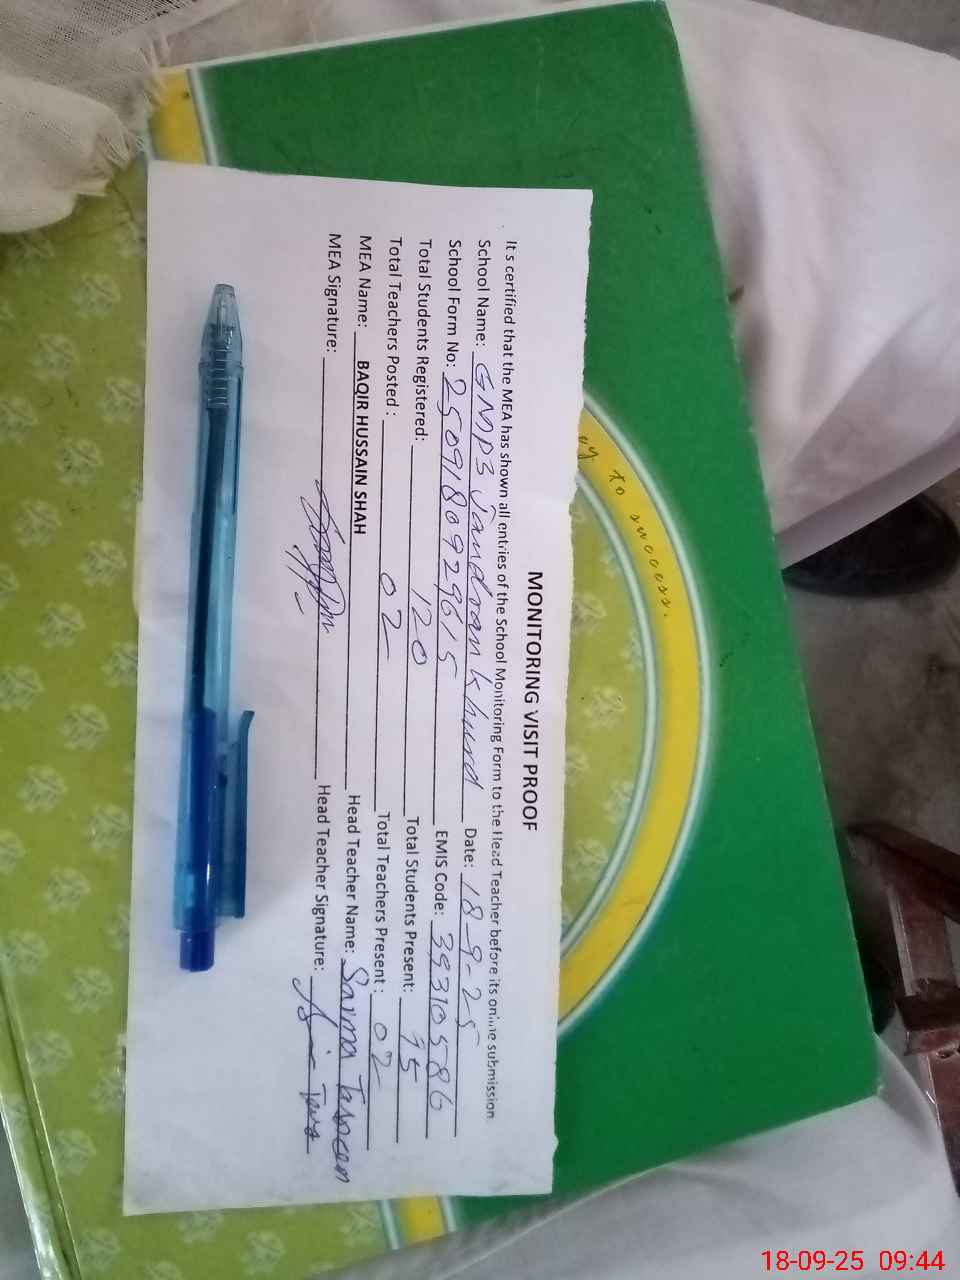 MONITORING VISIT PROOF
It s certified that the MEA has shown all entries of the School Monitoring Form to the Head Teacher before its online submission.
School Name: GMPS Jandraan Khurd Date: 18-9-25
School Form No: 2509180929615 EMIS Code: 39310586
Total Students Registered: 120 Total Students Present: 95
Total Teachers Posted : 02 Total Teachers Present : 02
MEA Name: BAQIR HUSSAIN SHAH Head Teacher Name: Saima Tasneem
MEA Signature: Head Teacher Signature:
to success.
18-09-25 09:44